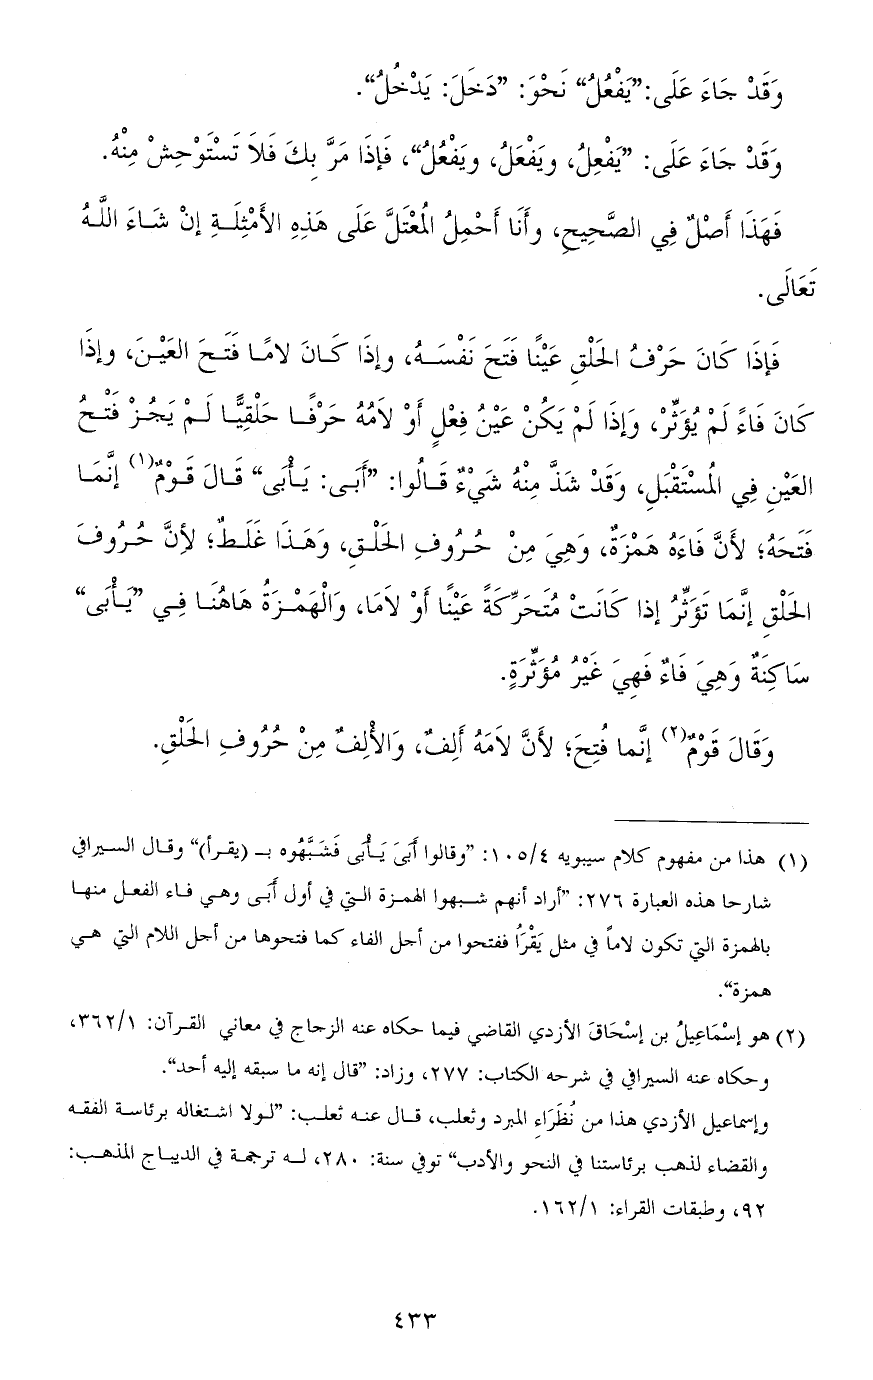 وَقَدْ جَاءَ عَلَى: ”يَفْعُلُ“ نَحْوَ: ”دَخَلَ: يَدْخُلُ“.
وَقَدْ جَاءَ عَلَى: ”يَفْعِلُ، ويَفْعَلُ، ويَفْعُلُ“، فَإِذَا مَرَّ بِكَ فَلاَ تَسْتَوْحِشْ مِنْهُ.
فَهَذَا أَصْلٌ فِي الصَّحِيحِ، وأَنَا أَحْمِلُ الْمُعْتَلَّ عَلَى هَذِهِ الأَمْثِلَةِ إنْ شَاءَ اللَّهُ
تَعَالَى.
فَإِذَا كَانَ حَرْفُ الحَلْقِ عَيْنًا فَتَحَ نَفْسَهُ، وإذَا كَانَ لامًا فَتَحَ العَيْنَ، وإذَا
كَانَ فَاءً لَمْ يُؤَثِّرْ، وَإِذَا لَمْ يَكُنْ عَيْنُ فِعْلٍ أَوْ لاَمُهُ حَرْفًا حَلْقِيًّا لَمْ يَجُزْ فَتْحُ
العَيْنِ فِي الْمُسْتَقْبَلِ، وَقَدْ شَذَّ مِنْهُ شَيْءٌ قَالُوا: ”أَبَى: يَأْبَى“ قَالَ قَوْمٌ(١) إنَّمَا
فَتَحَهُ؛ لأَنَّ فَاءَهُ هَمْزَةٌ، وَهِيَ مِنْ حُرُوفِ الحَلْقِ، وَهَذَا غَلَطٌ؛ لأِنَّ حُرُوفَ
الحَلْقِ إنَّمَا تَؤَثِّرُ إذا كَانَتْ مُتَحَرِّكَةً عَيْنًا أَوْ لاَمَا، وَالْهَمْزَةُ هَاهُنَا فِي ”يَأْبَى“
سَاكِنَةٌ وَهِيَ فَاءٌ فَهِيَ غَيْرُ مُؤَثِّرَةٍ.
وَقَالَ قَوْمٌ(٢) إنَّما فُتِحَ؛ لأَنَّ لاَمَهُ أَلِفٌ، وَالأْلِفٌ مِنْ حُرُوفِ الحَلْقِ.
(١) هذا من مفهوم كلام سيبويه ١٠٥/٤: ”وقالوا أَبَىَ يَأْبى فَشَبَّهُوه بـ (يقرأ)“ وقال السيرافي
شارحا هذه العبارة ٢٧٦: ”أراد أنهم شبهوا الهمزة التي في أول أَبَى وهي فاء الفعل منها
بالهمزة التي تكون لاماً في مثل يَقْرَأُ ففتحوا من أجل الفاء كما فتحوها من أجل اللام التي هي
همزة“.
(٢) هو إسْمَاعِيلُ بن إسْحَاقَ الأزدي القاضي فيما حكاه عنه الزجاج في معاني القرآن: ٣٦٢/١،
وحكاه عنه السيرافي في شرحه الكتاب: ٢٧٧، وزاد: ”قال إنه ما سبقه إليه أحد“.
وإسماعيل الأزدي هذا من نُظَرَاءِ المبرد وثعلب، قال عنه ثعلب: ”لولا اشتغاله برئاسة الفقه
والقضاء لذهب برئاستنا في النحو والأدب“ توفي سنة: ٢٨٠، له ترجمة في الديباج المذهب:
٩٢، وطبقات القراء: ١٦٢/١.
٤٣٣